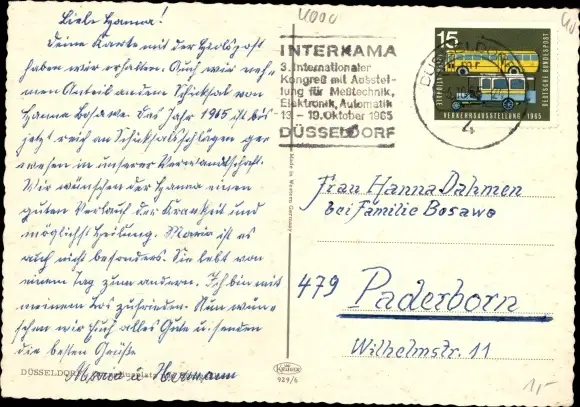 4000
Liebe Hanna!
Deine Karte mit der Eilpost
haben wir erhalten. Auch wir neh-
men Anteil an dem Schicksal von
Hanna Bosawe. Das Jahr 1965 ist bis
jetzt reich an Schicksalsschlägen ge-
wesen in unserer Verwandtschaft.
Wir wünschen der Hanna einen
guten Verlauf der Krankheit und
möglichst Heilung. Maria ist es
auch nicht besonders. Sie lebt von
einem Tag zum andern. Ich bin mit
meinem Los zufrieden. Nun wün-
schen wir Euch alles Gute u. senden
die besten Grüße
Maria u. Hermann
DÜSSELDORF
INTERKAMA
3. Internationaler
Kongreß mit Ausstel-
lung für Meßtechnik,
Elektronik, Automatik
13. – 19. Oktober 1965
DÜSSELDORF
DÜSSELDORF
4
15
DEUTSCHE BUNDESPOST
VERKEHRSAUSSTELLUNG 1965
Made in Western Germany
Frau Hanna Dahmen
bei Familie Bosawe
479 Paderborn
Wilhelmstr. 11
Krüger
929/6
1,-